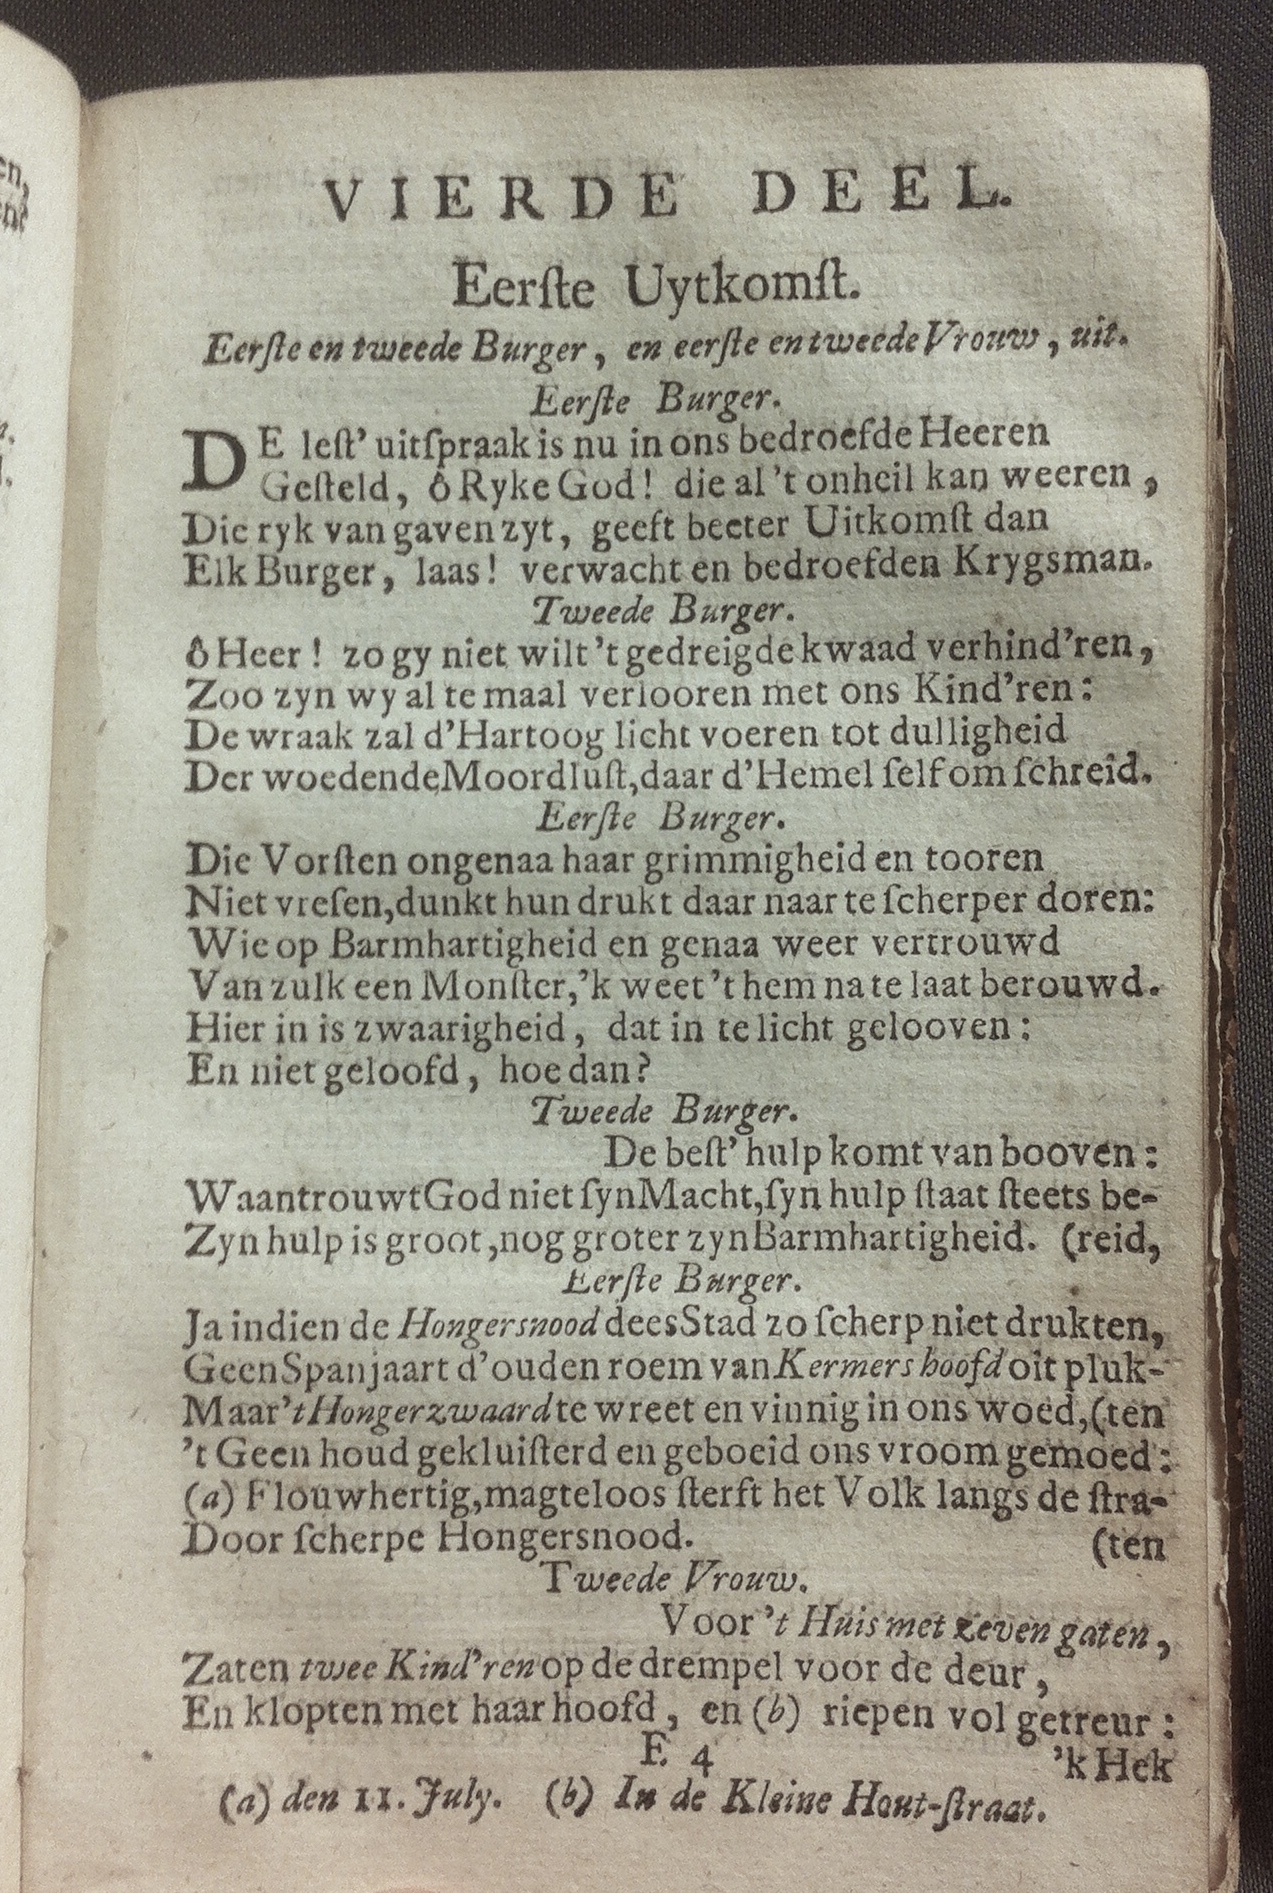 VIERDE DEEL.
Eerſte Uytkomſt.
Eerſte en tweede Burger, en eerſte en tweede Vrouw, uit.
Eerſte Burger.
DE leſt' uitſpraak is nu in ons bedroefde Heeren
Geſteld, ô Ryke God! die al 't onheil kan weeren,
Die ryk van gaven zyt, geeft beeter Uitkomſt dan
Elk Burger, laas! verwacht en bedroefden Krygsman.
Tweede Burger.
ô Heer! zo gy niet wilt 't gedreigde kwaad verhind'ren,
Zoo zyn wy al te maal verlooren met ons Kind'ren:
De wraak zal d'Hartoog licht voeren tot dulligheid
Der woedende Moordluſt, daar d'Hemel ſelf om ſchreid.
Eerſte Burger.
Die Vorſten ongenaa haar grimmigheid en tooren
Niet vreſen, dunkt hun drukt daar naar te ſcherper doren:
Wie op Barmhartigheid en genaa weer vertrouwd
Van zulk een Monſter, 'k weet 't hem na te laat berouwd.
Hier in is zwaarigheid, dat in te licht gelooven:
En niet geloofd, hoe dan?
Tweede Burger.
De beſt' hulp komt van booven:
Waantrouwt God niet ſyn Macht, ſyn hulp ſtaat ſteets be-
Zyn hulp is groot, nog groter zyn Barmhartigheid. (reid,
Eerſte Burger.
Ja indien de Hongersnood dees Stad zo ſcherp niet drukten,
Geen Spanjaart d'ouden roem van Kermers hoofd oit pluk-
Maar 't Hongerzwaard te wreet en vinnig in ons woed, (ten
't Geen houd gekluiſterd en geboeid ons vroom gemoed:
(a) Flouwhertig, magteloos ſterft het Volk langs de ſtra-
Door ſcherpe Hongersnood. (ten
Tweede Vrouw.
Voor 't Huis met zeven gaten,
Zaten twee Kind'ren op de drempel voor de deur,
En klopten met haar hoofd, en (b) riepen vol getreur:
E 4 'k Hek
(a) den 11. July. (b) In de Kleine Hout-ſtraat.